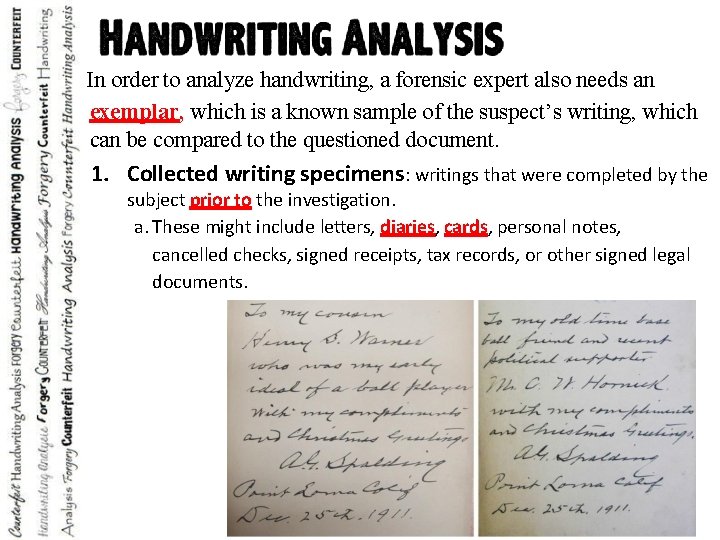 Counterfeit Handwriting Analysis Forgery Counterfeit Handwriting Analysis Forgery Counterfeit
Handwriting Analysis Forgery Counterfeit Handwriting Analysis Forgery Counterfeit Handwriting
Analysis Forgery Counterfeit Handwriting Analysis Forgery Counterfeit Handwriting Analysis
HANDWRITING ANALYSIS
In order to analyze handwriting, a forensic expert also needs an
exemplar, which is a known sample of the suspect’s writing, which
can be compared to the questioned document.
1. Collected writing specimens: writings that were completed by the
subject prior to the investigation.
a. These might include letters, diaries, cards, personal notes,
cancelled checks, signed receipts, tax records, or other signed legal
documents.
To my cousin
Henry S. Warner
who was my early
ideal of a ball player
With my compliments
and Christmas Greetings.
A.G. Spalding
Point Loma Calif
Dec. 25th. 1911.
To my old time base
ball friend and recent
political supporter
Mr. C. W. Hornick
with my compliments
and Christmas Greetings.
A.G. Spalding
Point Loma Calif
Dec. 25th. 1911.